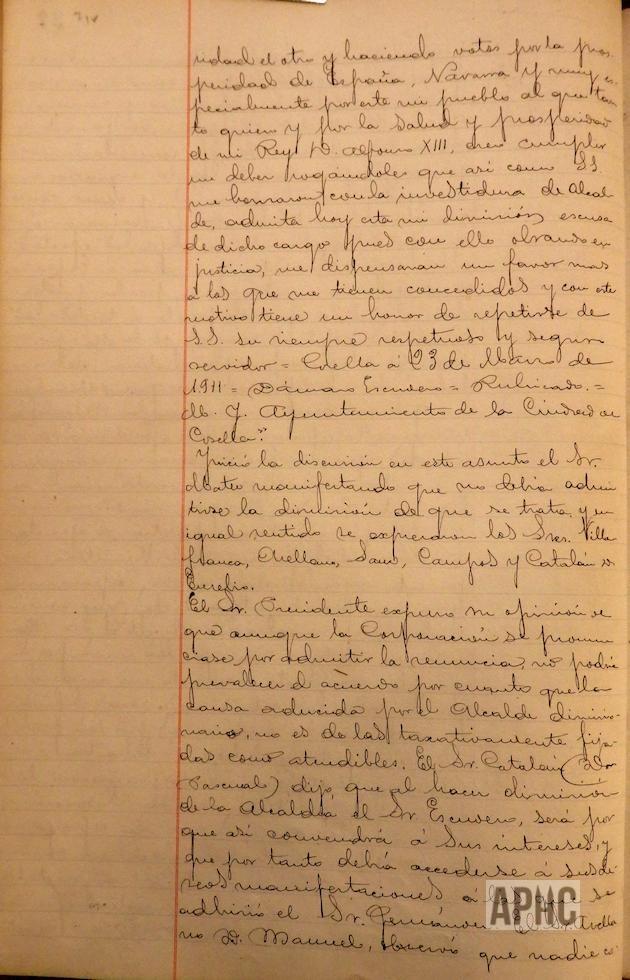 ridad el otro y haciendo votos por la pros-
peridad de España, Navarra y muy es-
pecialmente por este mi pueblo al que tan-
to quiero y por la salud y prosperidad
de mi Rey D. Alfonso XIII, creo cumplir
un deber rogándoles que así como SS.
me honraron con la investidura de Alcal-
de, admita hoy esta mi dimisión, escusa
de dicho cargo pues con ello obrando en
justicia, me dispensarán un favor mas
á los que me tienen concedidos y con este
motivo tiene un honor de repetirse de
S.S. su siempre respetuoso y seguro
servidor = Corella á 23 de Marzo de
1911 = Dámaso Escudero = Rubricado. =
M. Y. Ayuntamiento de la Ciudad de
Corella".
Inició la discusión en este asunto el Sr.
Mateo manifestando que no debía admi-
tirse la dimisión de que se trata y en
igual sentido se expresaron los Sres. Villa-
franca, Arellano, Sanz, Campos y Catalán D.
Eusebio.
El Sr. Presidente expuso su opinión de
que aunque la Corporación se pronun
ciase por admitir la renuncia, no podría
prevalecer el acuerdo por cuanto que la
causa aducida por el Alcalde dimisio-
nario, no es de las taxativamente fija-
das como atendibles. El Sr. Catalán (Don
Pascual) dijo, que al hacer dimisión
de la Alcaldía el Sr. Escudero, será por
que así convendrá á sus intereses, y
que por tanto debía accederse á sus de-
seos manifestaciones á las que se
adhirió el Sr. Fernández. El Sr. Arella
no D. Manuel, observó que nadie co-
APHC